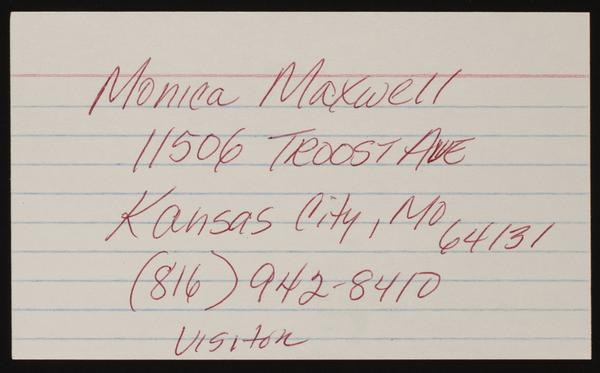 Monica Maxwell
11506 TROOST AVE
Kansas City, Mo 64131
(816) 942-8410
Visitor